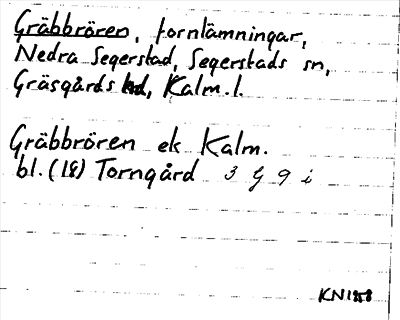 Gräbbrören, fornlämningar,
Nedra Segerstad, Segerstads sn,
Gräsgårds hd, Kalm. l.
Gräbbrören ek Kalm.
bl. (18) Torngård 3 G 9 i
KN1858